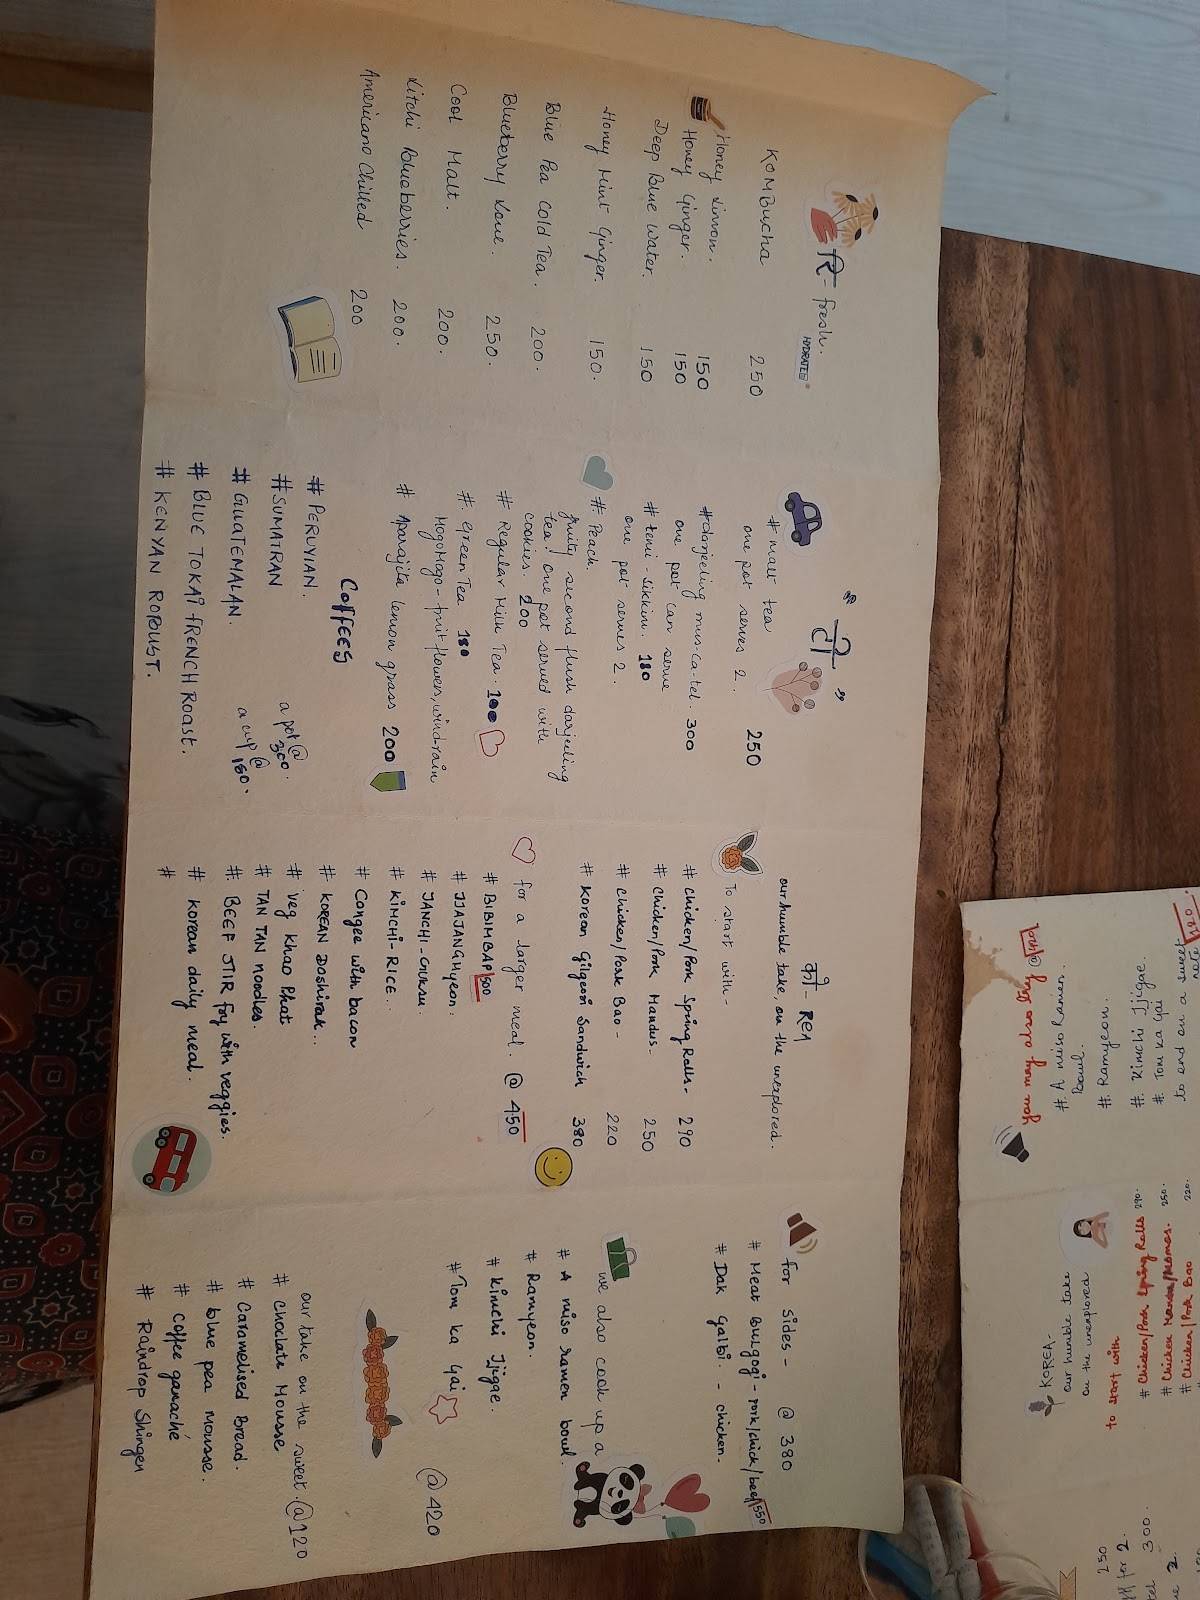 R-fresh.
HYDRATE
KOMBucha 250
Honey Limon. 150
Honey Ginger. 150
Deep Blue Water. 150
Honey Mint Ginger. 150.
Blue Pea Cold Tea. 200.
Blueberry Love. 250.
Cool Malt. 200.
Litchi Blueberries. 200.
Americano Chilled 200
" टी "
# malt tea
one pot serves 2. 250
# darjeeling mus-ca-tel. 300
one pot can serve
# temi - sikkim. 180
one pot serves 2.
# Peach.
fruity second flush darjeeling
tea! one pot served with
cookies. 200
# Regular Milk Tea. 100
#. Green Tea 180
MogoMogo - fruit flower, wind-rain
# Aparajita lemon grass 200
Coffees
# PERUVIAN.
# SUMATRAN
# GUATEMALAN.
# BLUE TOKAI FRENCH ROAST.
# KENYAN ROBUST.
a pot @
300.
a cup @
180.
को - Rea
our humble take, on the unexplored.
To start with -
# chicken/Pork Spring Rolls - 290
# Chicken/Pork Mandus - 250
# chicken/Pork Bao - 220
# Korean Gilgeori Sandwich 380
for a larger meal. @ 450
# BIBIMBAP 500
# JJAJANGMyeon.
# JANCHI-GUKSU.
# KIMCHI-RICE..
# Congee with bacon
# KOREAN DOSHIRAK...
# veg Khao Phat
# TAN TAN noodles.
#. BEEF STIR fry with veggies.
# korean daily meal.
#
for sides - @ 380
# Meat BULgogi - pork/chick/beef 550
# Dak Galbi. - chicken.
we also cook up a
# A miso ramen bowl.
# Ramyeon.
# Kimchi Jjigge.
# Tom ka Gai
@420
our take on the sweet. @120
# Choclate Mousse
# Caramelised Bread.
# blue pea mousse.
# Coffee ganaché
# Raindrop Shingen
you may also try @
#. A miso Ramen
Bowl.
# Ramyeon.
#. Kimchi Jjigae.
# Tom ka Gai
to end on a sweet
note
KOREA -
our humble take
on the unexplored
to start with
# Chicken/Pork Spring Rolls 290.
# Chicken Mandu/Momos. 250.
# Chicken/Pork Bao 220.
250
for 2.
300
2.